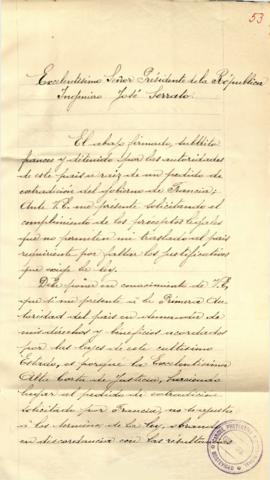 53
Excelentísimo Señor Presidente de la República
Ingeniero José Serrato.
El abajo firmado, súbdito
francés y detenido por las autoridades
de este país a raíz de un pedido de
extradición del gobierno de Francia;
Ante V.E. me presento solicitando el
cumplimiento de los preceptos legales
que no permiten mi traslado al país
requirente por faltar los justificativos
que exige la ley.
Debo poner en conocimiento de V.E.
que si me presento á la Primera Au-
toridad del país en demanda de
mis derechos y beneficios acordados
por las leyes de este cultísimo
Estado, es porqué la Excelentísima
Alta Corte de Justicia, haciendo
lugar al pedido de extradición
solicitada por Francia, no lo
á los términos de la ley,
en discordancia con las